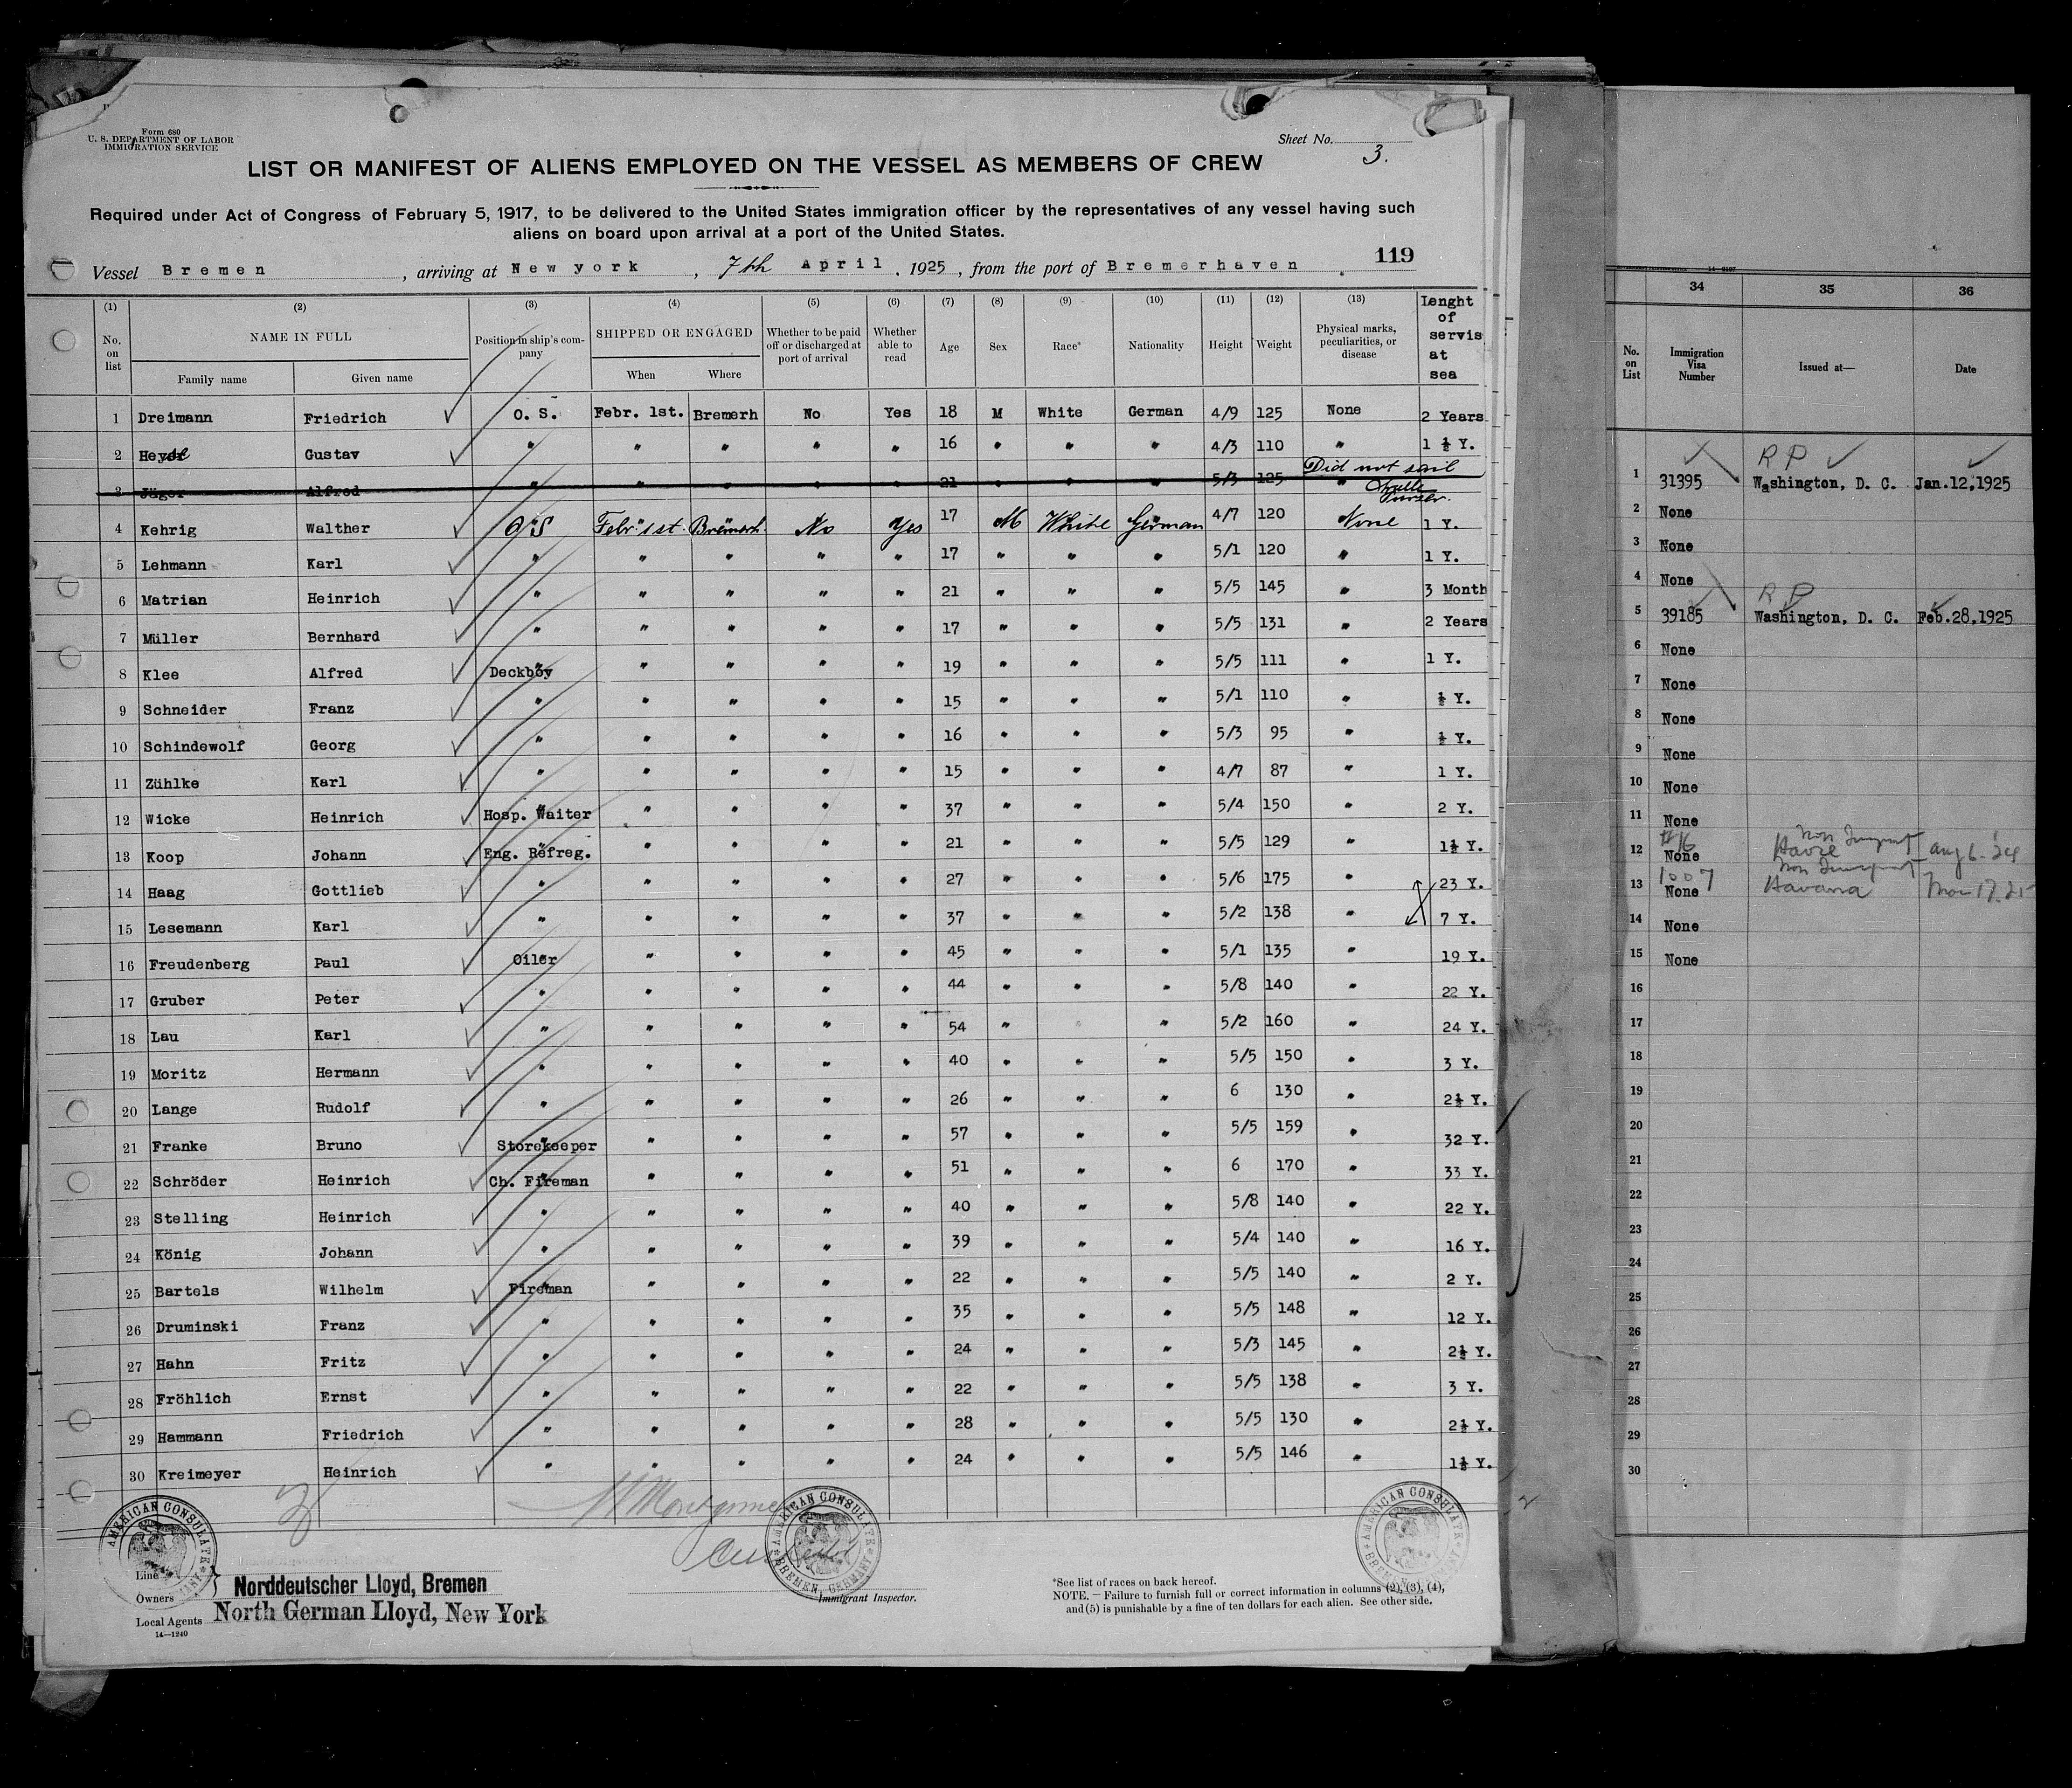 Form 680
U. S. DEPARTMENT OF LABOR
IMMIGRATION SERVICE
Sheet No. 3.
LIST OR MANIFEST OF ALIENS EMPLOYED ON THE VESSEL AS MEMBERS OF CREW
Required under Act of Congress of February 5, 1917, to be delivered to the United States immigration officer by the representatives of any vessel having such
aliens on board upon arrival at a port of the United States.
119
Vessel Bremen, arriving at New york, 7th April, 1925, from the port of Bremerhaven.
(1) (2) (3) (4) (5) (6) (7) (8) (9) (10) (11) (12) (13) Lenght of servis at sea
No. on list NAME IN FULL Position in ship's company SHIPPED OR ENGAGED Whether to be paid off or discharged at port of arrival Whether able to read Age Sex Race* Nationality Height Weight Physical marks, peculiarities, or disease
Family name Given name When Where
1 Dreimann Friedrich O. S. Febr. 1st. Bremerh No Yes 18 M White German 4/9 125 None 2 Years
2 Heyse Gustav " " " " " 16 " " " 4/3 110 " 1 ½ Y.
3 Jäger Alfred " " " " " 21 " " " 5/3 125 " Did not sail
4 Kehrig Walther O/S Febr 1st. Bremerh. No Yes 17 M White German 4/7 120 None 1 Y.
5 Lehmann Karl " " " " " 17 " " " 5/1 120 " 1 Y.
6 Matrian Heinrich " " " " " 21 " " " 5/5 145 " 3 Month
7 Müller Bernhard " " " " " 17 " " " 5/5 131 " 2 Years
8 Klee Alfred Deckboy " " " " 19 " " " 5/5 111 " 1 Y.
9 Schneider Franz " " " " " 15 " " " 5/1 110 " ½ Y.
10 Schindewolf Georg " " " " " 16 " " " 5/3 95 " ½ Y.
11 Zühlke Karl " " " " " 15 " " " 4/7 87 " 1 Y.
12 Wicke Heinrich Hosp. Waiter " " " " 37 " " " 5/4 150 " 2 Y.
13 Koop Johann Eng. Refreg. " " " " 21 " " " 5/5 129 " 1½ Y.
14 Haag Gottlieb " " " " " 27 " " " 5/6 175 " 23 Y.
15 Lesemann Karl " " " " " 37 " " " 5/2 138 " 7 Y.
16 Freudenberg Paul Oiler " " " " 45 " " " 5/1 135 " 19 Y.
17 Gruber Peter " " " " " 44 " " " 5/8 140 " 22 Y.
18 Lau Karl " " " " " 54 " " " 5/2 160 " 24 Y.
19 Moritz Hermann " " " " " 40 " " " 5/5 150 " 3 Y.
20 Lange Rudolf " " " " " 26 " " " 6 130 " 2½ Y.
21 Franke Bruno Storekeeper " " " " 57 " " " 5/5 159 " 32 Y.
22 Schröder Heinrich Ch. Fireman " " " " 51 " " " 6 170 " 33 Y.
23 Stelling Heinrich " " " " " 40 " " " 5/8 140 " 22 Y.
24 König Johann " " " " " 39 " " " 5/4 140 " 16 Y.
25 Bartels Wilhelm Fireman " " " " 22 " " " 5/5 140 " 2 Y.
26 Druminski Franz " " " " " 35 " " " 5/5 148 " 12 Y.
27 Hahn Fritz " " " " " 24 " " " 5/3 145 " 2½ Y.
28 Fröhlich Ernst " " " " " 22 " " " 5/5 138 " 3 Y.
29 Hammann Friedrich " " " " " 28 " " " 5/5 130 " 2½ Y.
30 Kreimeyer Heinrich " " " " " 24 " " " 5/5 146 " 1½ Y.
AMERICAN CONSULATE
AMERICAN CONSULATE BREMEN, GERMANY
AMERICAN CONSULATE BREMEN, GERMANY
Line
Owners Norddeutscher Lloyd, Bremen
Local Agents North German Lloyd, New York
14—1240
Immigrant Inspector.
*See list of races on back hereof.
NOTE.—Failure to furnish full or correct information in columns (2), (3), (4),
and (5) is punishable by a fine of ten dollars for each alien. See other side.
34 35 36
No. on List Immigration Visa Number Issued at— Date
R P
1 31395 Washington, D. C. Jan.12,1925
2 None
3 None
4 None
R P
5 39185 Washington, D. C. Feb.28,1925
6 None
7 None
8 None
9 None
10 None
11 None
12 #16 None Havre Aug 6. 24
13 1007 None Havana Nov 17. 25
14 None
15 None
16
17
18
19
20
21
22
23
24
25
26
27
28
29
30